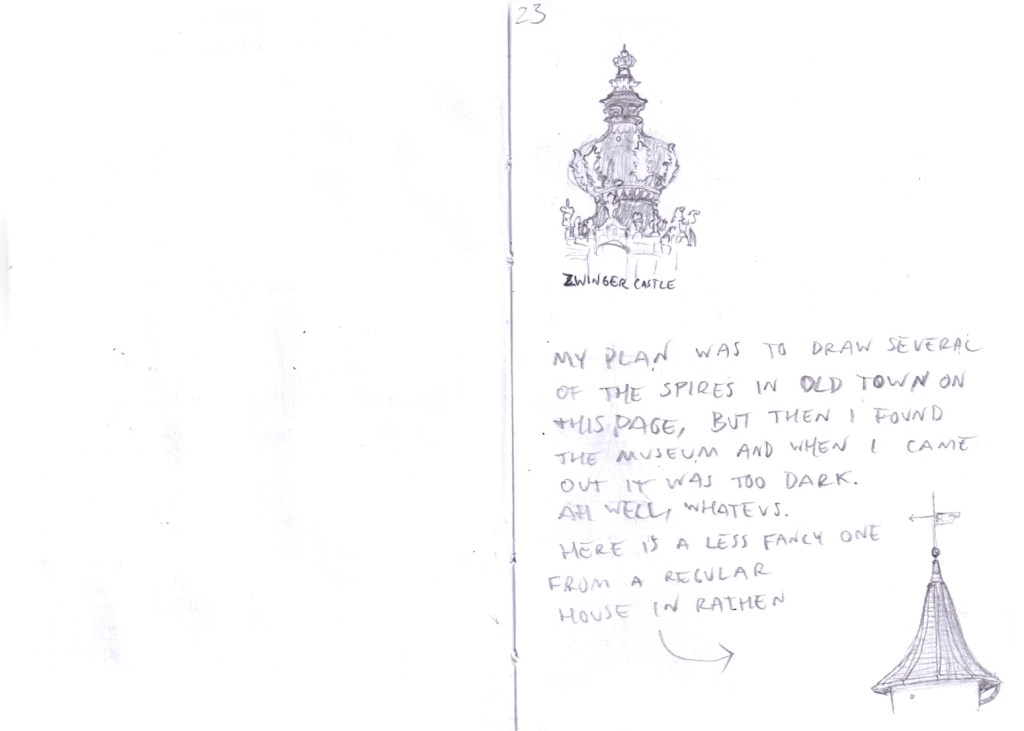 23
ZWINGER CASTLE
MY PLAN WAS TO DRAW SEVERAL
OF THE SPIRES IN OLD TOWN ON
THIS PAGE, BUT THEN I FOUND
THE MUSEUM AND WHEN I CAME
OUT IT WAS TOO DARK.
AH WELL, WHATEVS.
HERE IS A LESS FANCY ONE
FROM A REGULAR
HOUSE IN RATHEN